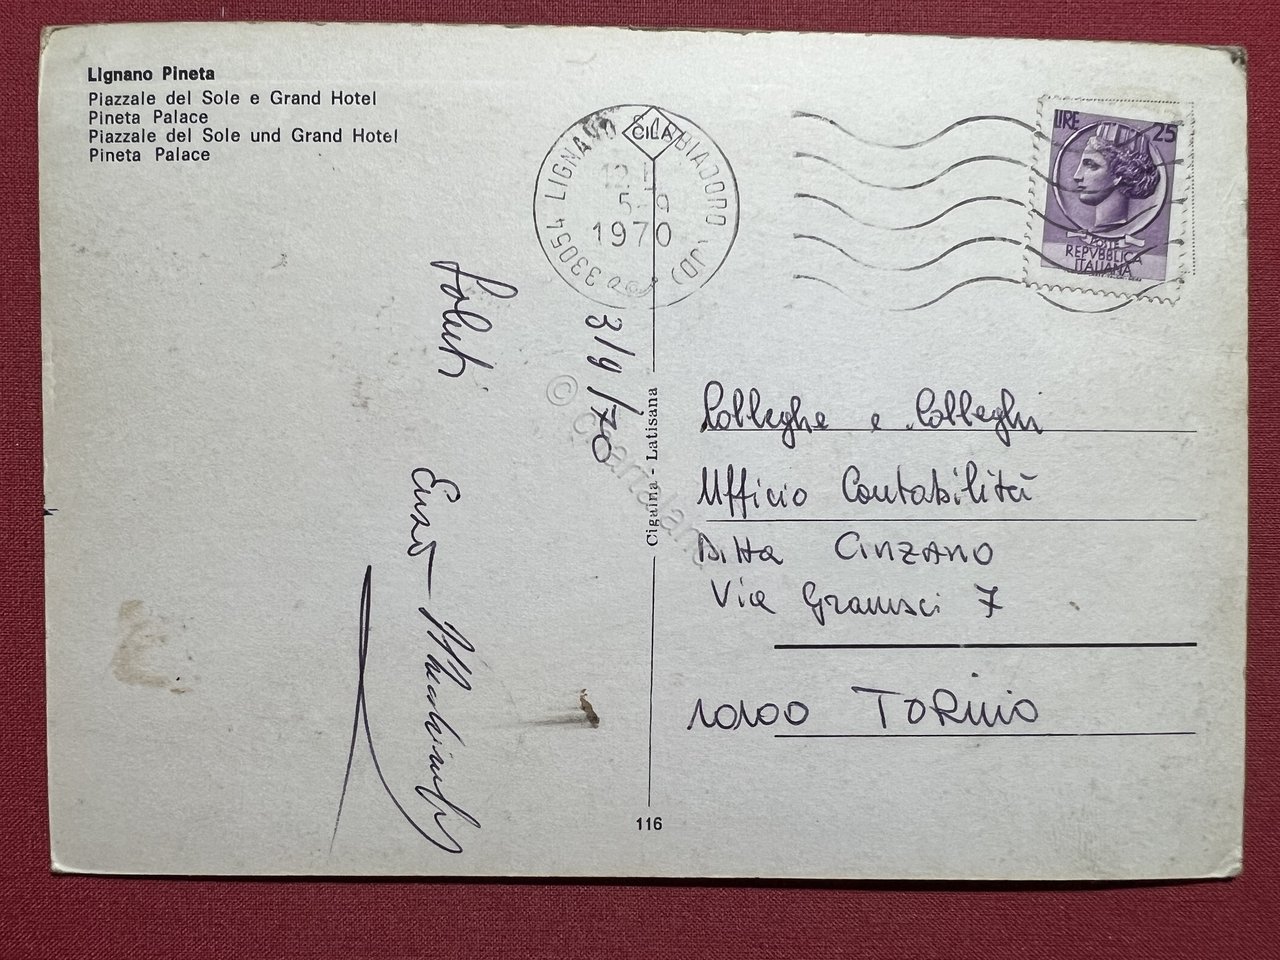 Lignano Pineta
Piazzale del Sole e Grand Hotel
Pineta Palace
Piazzale del Sole und Grand Hotel
Pineta Palace
33054 LIGNANO SABBIADORO (UD)
CILA
5-9
1970
LIRE 25
POSTE
REPVBBLICA
ITALIANA
3/9/70
Saluti
Enzo
Cigaina - Latisana
Colleghe e Colleghi
Ufficio Contabilità
Ditta CINZANO
Via Gramsci 7
10100 TORINO
116
© cartolan